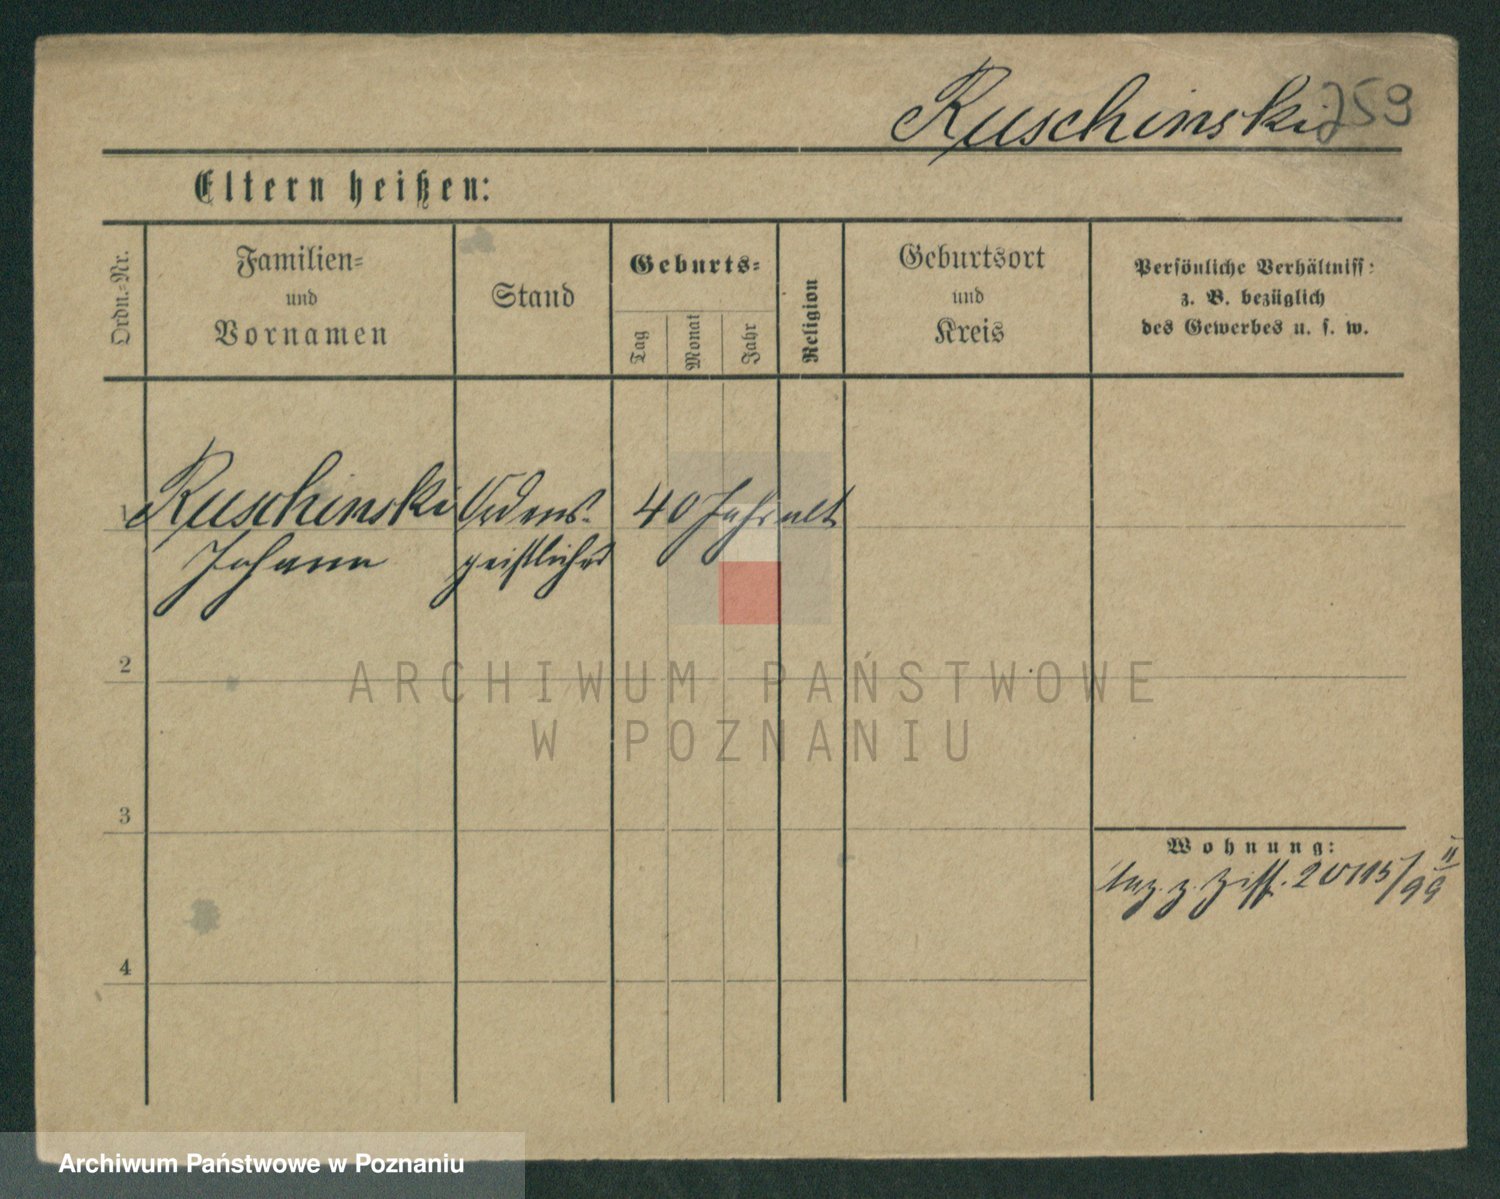 Ruschinski
759
Eltern heißen:
Ordn.-Nr.
Familien-
und
Vornamen
Stand
Geburts-
Tag
Monat
Jahr
Religion
Geburtsort
und
Kreis
Persönliche Verhältniss:
z. B. bezüglich
des Gewerbes u. s. w.
1
Ruschinski Ordens- 40 Jahr alt
Johann geistlicher
2
3
4
Wohnung:
z. 20115/99 II
ARCHIWUM PAŃSTWOWE
W POZNANIU
Archiwum Państwowe w Poznaniu